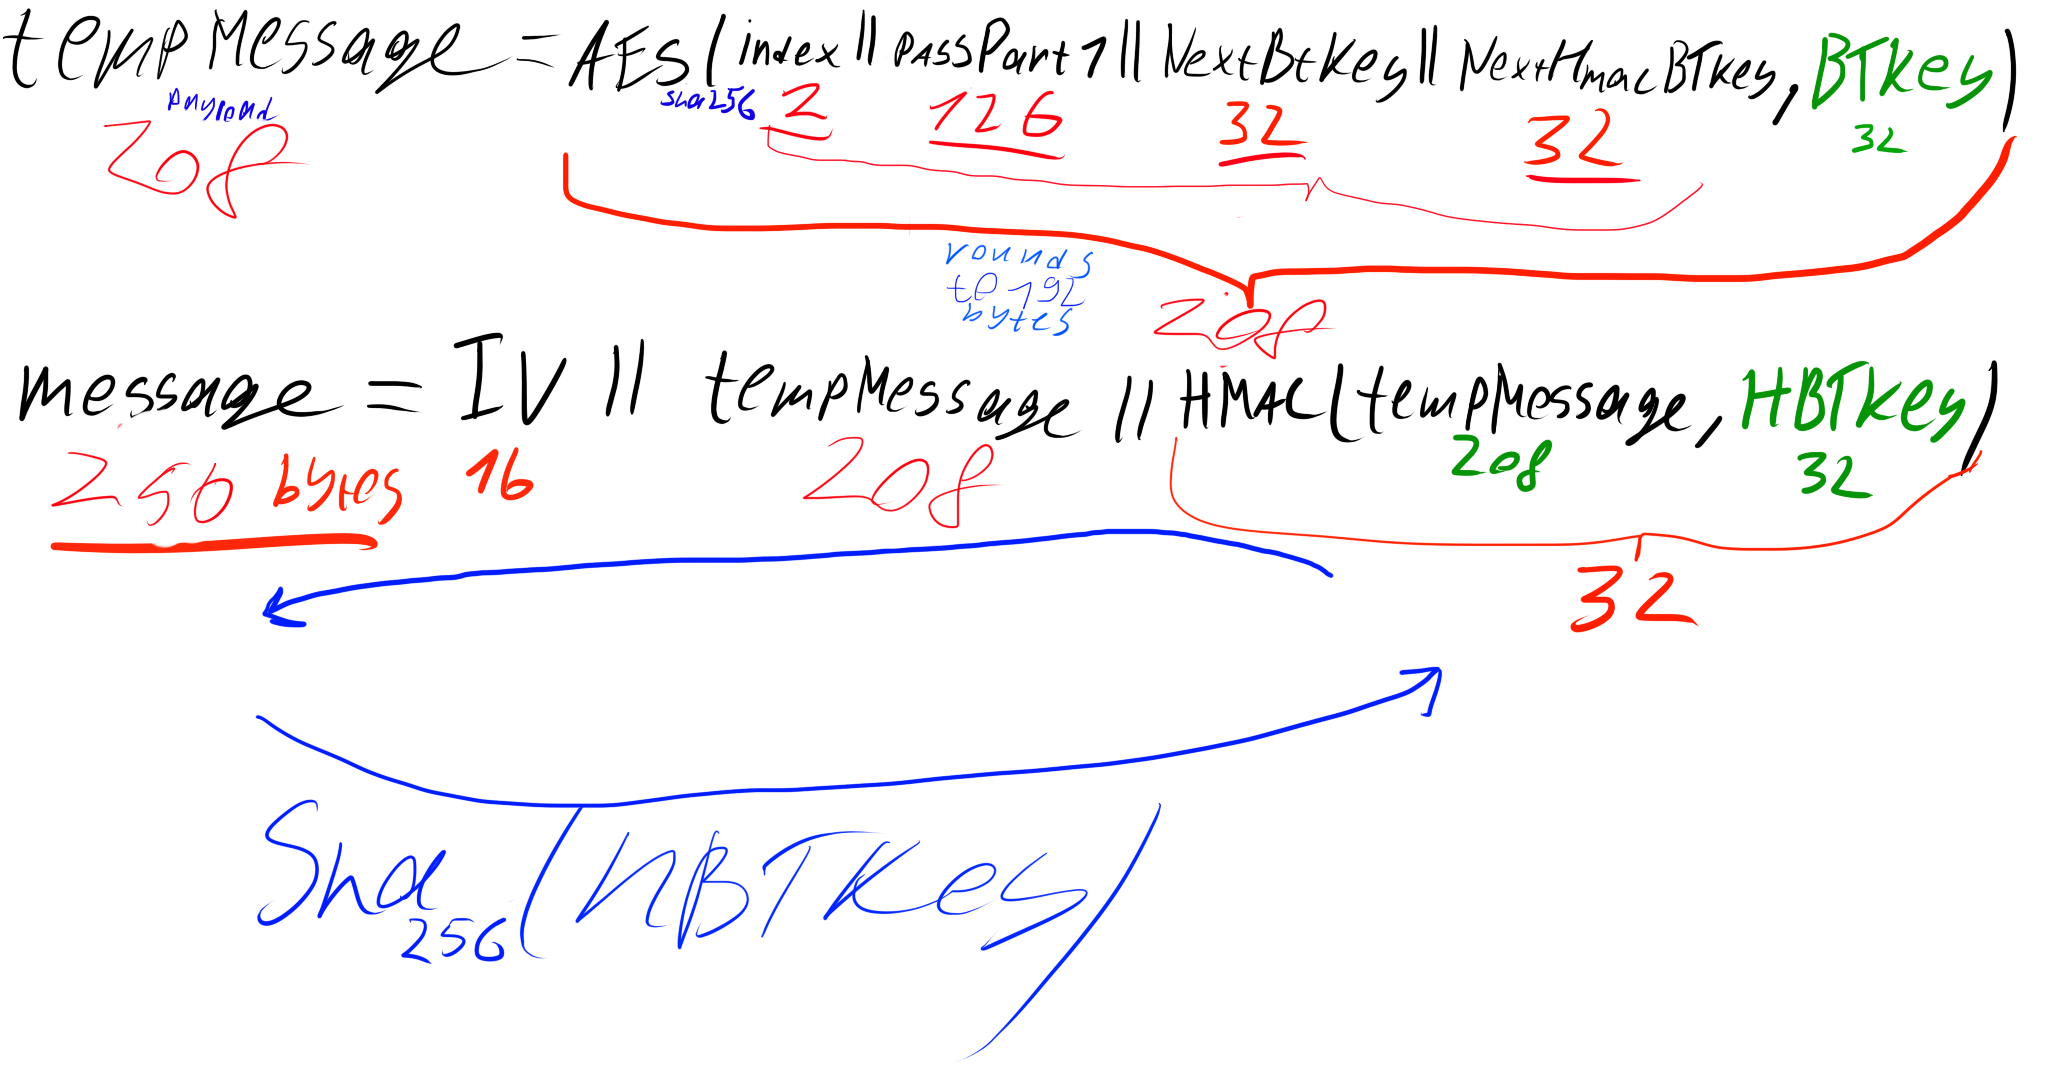 tempMessage = AES(index || PASSPart1 || NextBtKey || NextHmacBTKey, BTKey)
sha256 2 126 32 32 32
208
rounds
to 192
bytes
208
message = IV || tempMessage || HMAC(tempMessage, HBTKey)
256 bytes 16 208 208 32
32
Sha256(HBTKey)